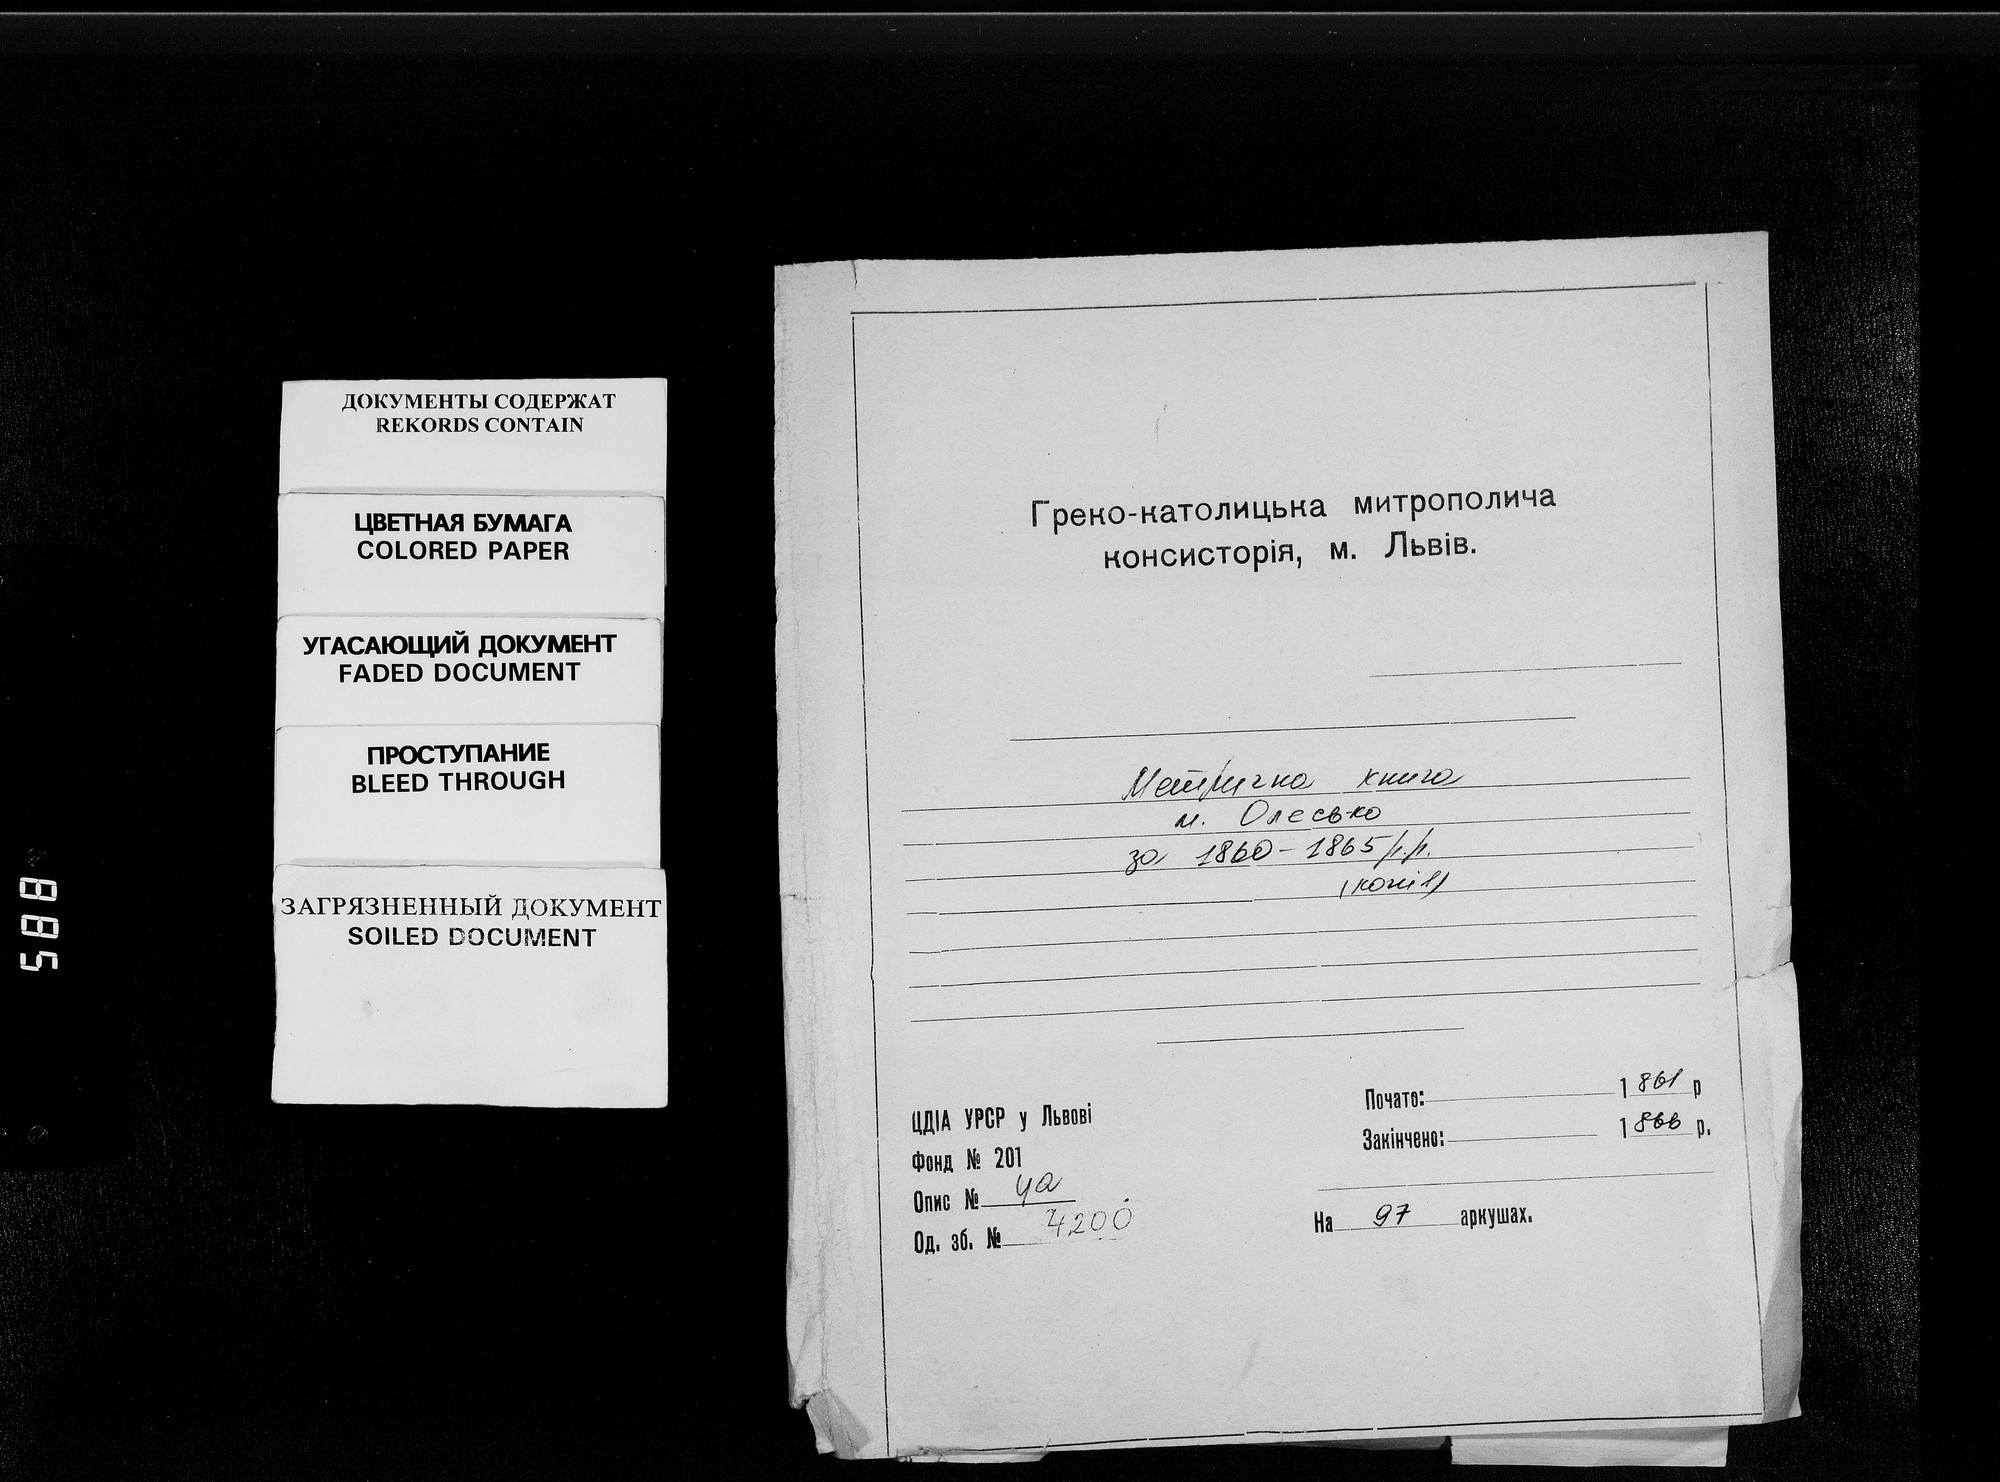 ДОКУМЕНТЫ СОДЕРЖАТ
REKORDS CONTAIN
ЦВЕТНАЯ БУМАГА
COLORED PAPER
УГАСАЮЩИЙ ДОКУМЕНТ
FADED DOCUMENT
ПРОСТУПАНИЕ
BLEED THROUGH
ЗАГРЯЗНЕННЫЙ ДОКУМЕНТ
SOILED DOCUMENT
588
Греко-католицька митрополича
консисторія, м. Львів.
Метрична книга
м. Олесько
за 1860-1865 р.р.
(копії)
ЦДІА УРСР у Львові
Фонд № 201
Опис № 4а
Од. зб. № 4200
Почато: 1861 р
Закінчено: 1866 р.
На 97 аркушах.